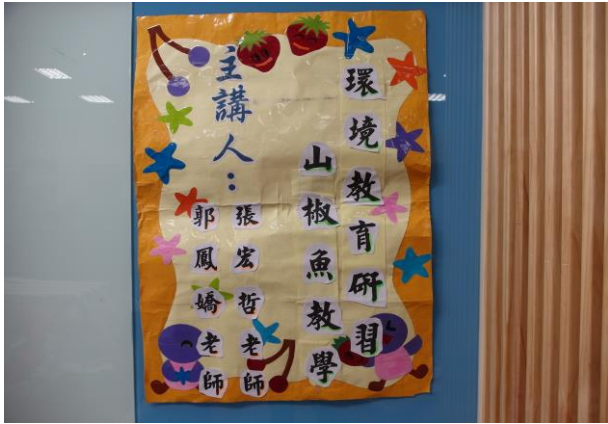 環境教育研習
山椒魚教學
主講人：
張宏哲老師
郭鳳嬌老師